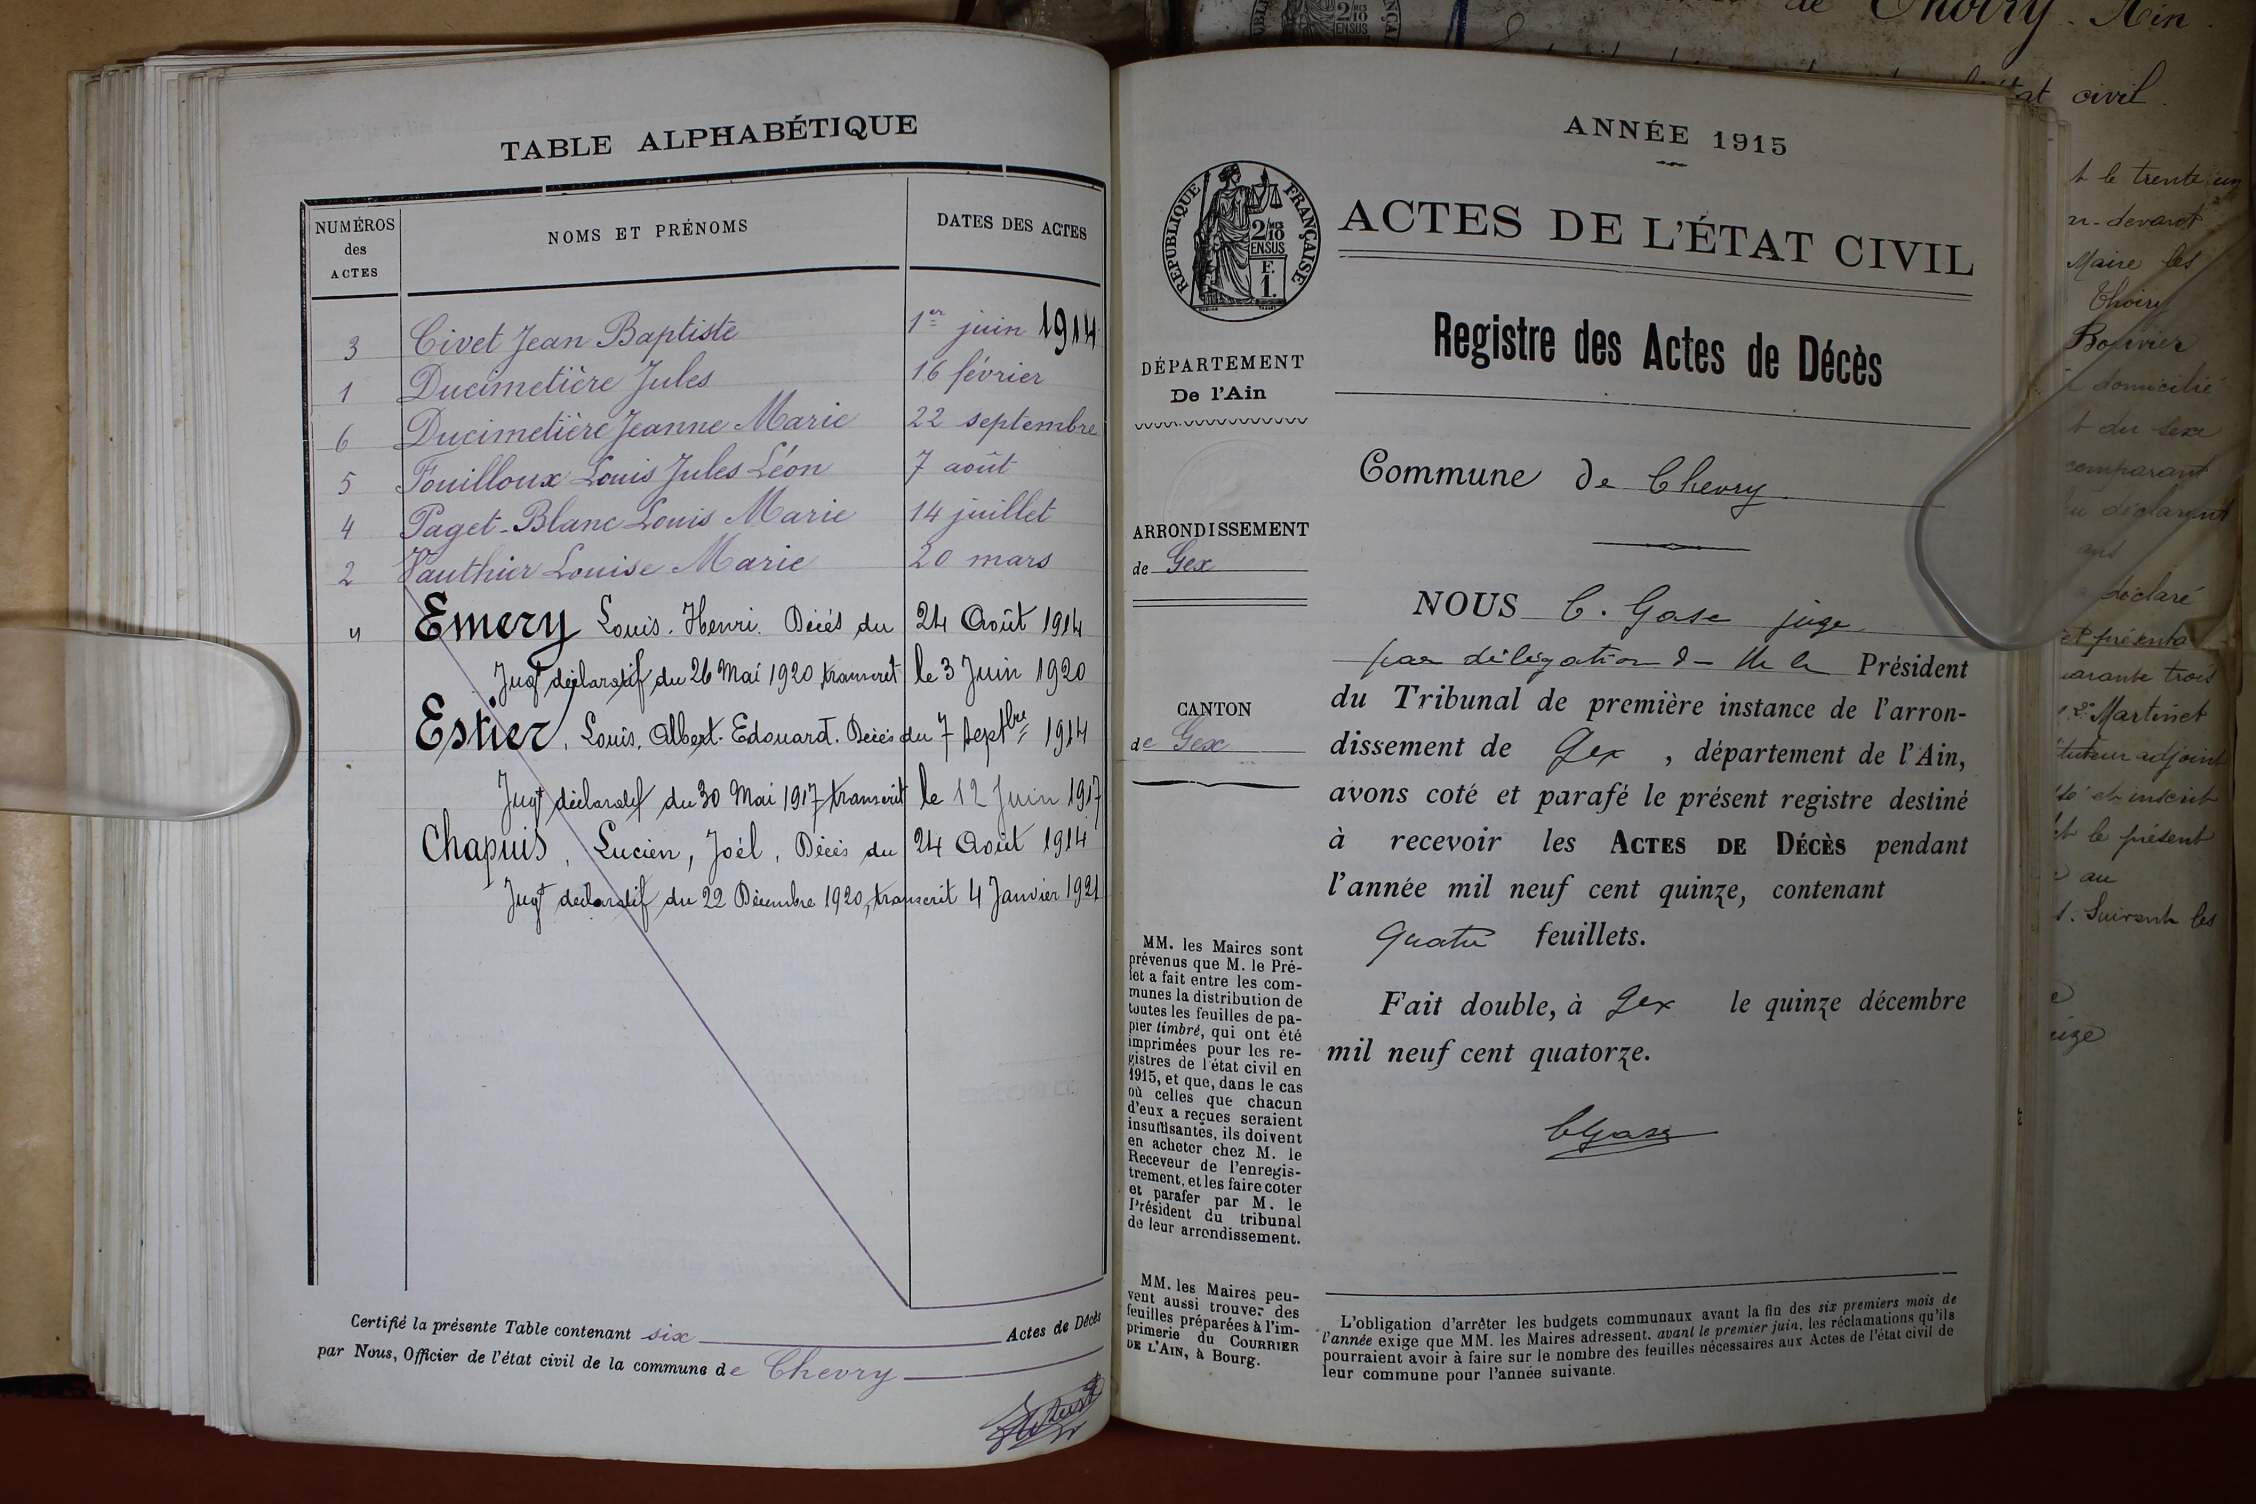 TABLE ALPHABÉTIQUE
NUMÉROS des ACTES
NOMS ET PRÉNOMS
DATES DES ACTES
3 Civet Jean Baptiste 1er juin 1914
1 Ducimetière Jules 16 février
6 Ducimetière Jeanne Marie 22 septembre
5 Fouilloux Louis Jules Léon 7 août
4 Paget-Blanc Louis Marie 14 juillet
2 Vauthier Louise Marie 20 mars
Emery Louis. Henri. Décés du 24 Août 1914
Jugt déclaratif du 26 Mai 1920 transcrit le 3 Juin 1920
Estier, Louis. Albert. Edouard. Décés du 7 Septbre 1914
Jugt déclaratif du 30 Mai 1917 transcrit le 12 Juin 1917
Chapuis, Lucien, Joél, Décés du 24 Août 1914
Jugt déclaratif du 22 Décembre 1920, transcrit 4 Janvier 1921
Certifié la présente Table contenant six Actes de Décès
par Nous, Officier de l'état civil de la commune de Chevry
ANNÉE 1915
RÉPUBLIQUE FRANÇAISE
2/10 EN SUS
F. 1.
ACTES DE L'ÉTAT CIVIL
Registre des Actes de Décès
DÉPARTEMENT
De l'Ain
Commune de Chevry
ARRONDISSEMENT
de Gex
CANTON
de Gex
NOUS C. Gase juge
par délégation de M le Président
du Tribunal de première instance de l'arron-
dissement de Gex, département de l'Ain,
avons coté et parafé le présent registre destiné
à recevoir les ACTES DE DÉCÈS pendant
l'année mil neuf cent quinze, contenant
quatre feuillets.
Fait double, à Gex le quinze décembre
mil neuf cent quatorze.
CGase
MM. les Maires sont
prévenus que M. le Pré-
fet a fait entre les com-
munes la distribution de
toutes les feuilles de pa-
pier timbré, qui ont été
imprimées pour les re-
gistres de l'état civil en
1915, et que, dans le cas
où celles que chacun
d'eux a reçues seraient
insuffisantes, ils doivent
en acheter chez M. le
Receveur de l'enregis-
trement, et les faire coter
et parafer par M. le
Président du tribunal
de leur arrondissement.
MM. les Maires peu-
vent aussi trouver des
feuilles préparées à l'im-
primerie du COURRIER
DE L'AIN, à Bourg.
L'obligation d'arrêter les budgets communaux avant la fin des six premiers mois de
l'année exige que MM. les Maires adressent, avant le premier juin, les réclamations qu'ils
pourraient avoir à faire sur le nombre des feuilles nécessaires aux Actes de l'état civil de
leur commune pour l'année suivante.
de Thoiry - Ain.
état civil.
le trente un
devant
Maire les
Thoiry
Bouvier
domicilié
du sexe
comparant
déclarant
ans
déclaré
et présenta
quarante trois
2° Martinet
adjoint
et inscrit
le présent
au
Suivent les